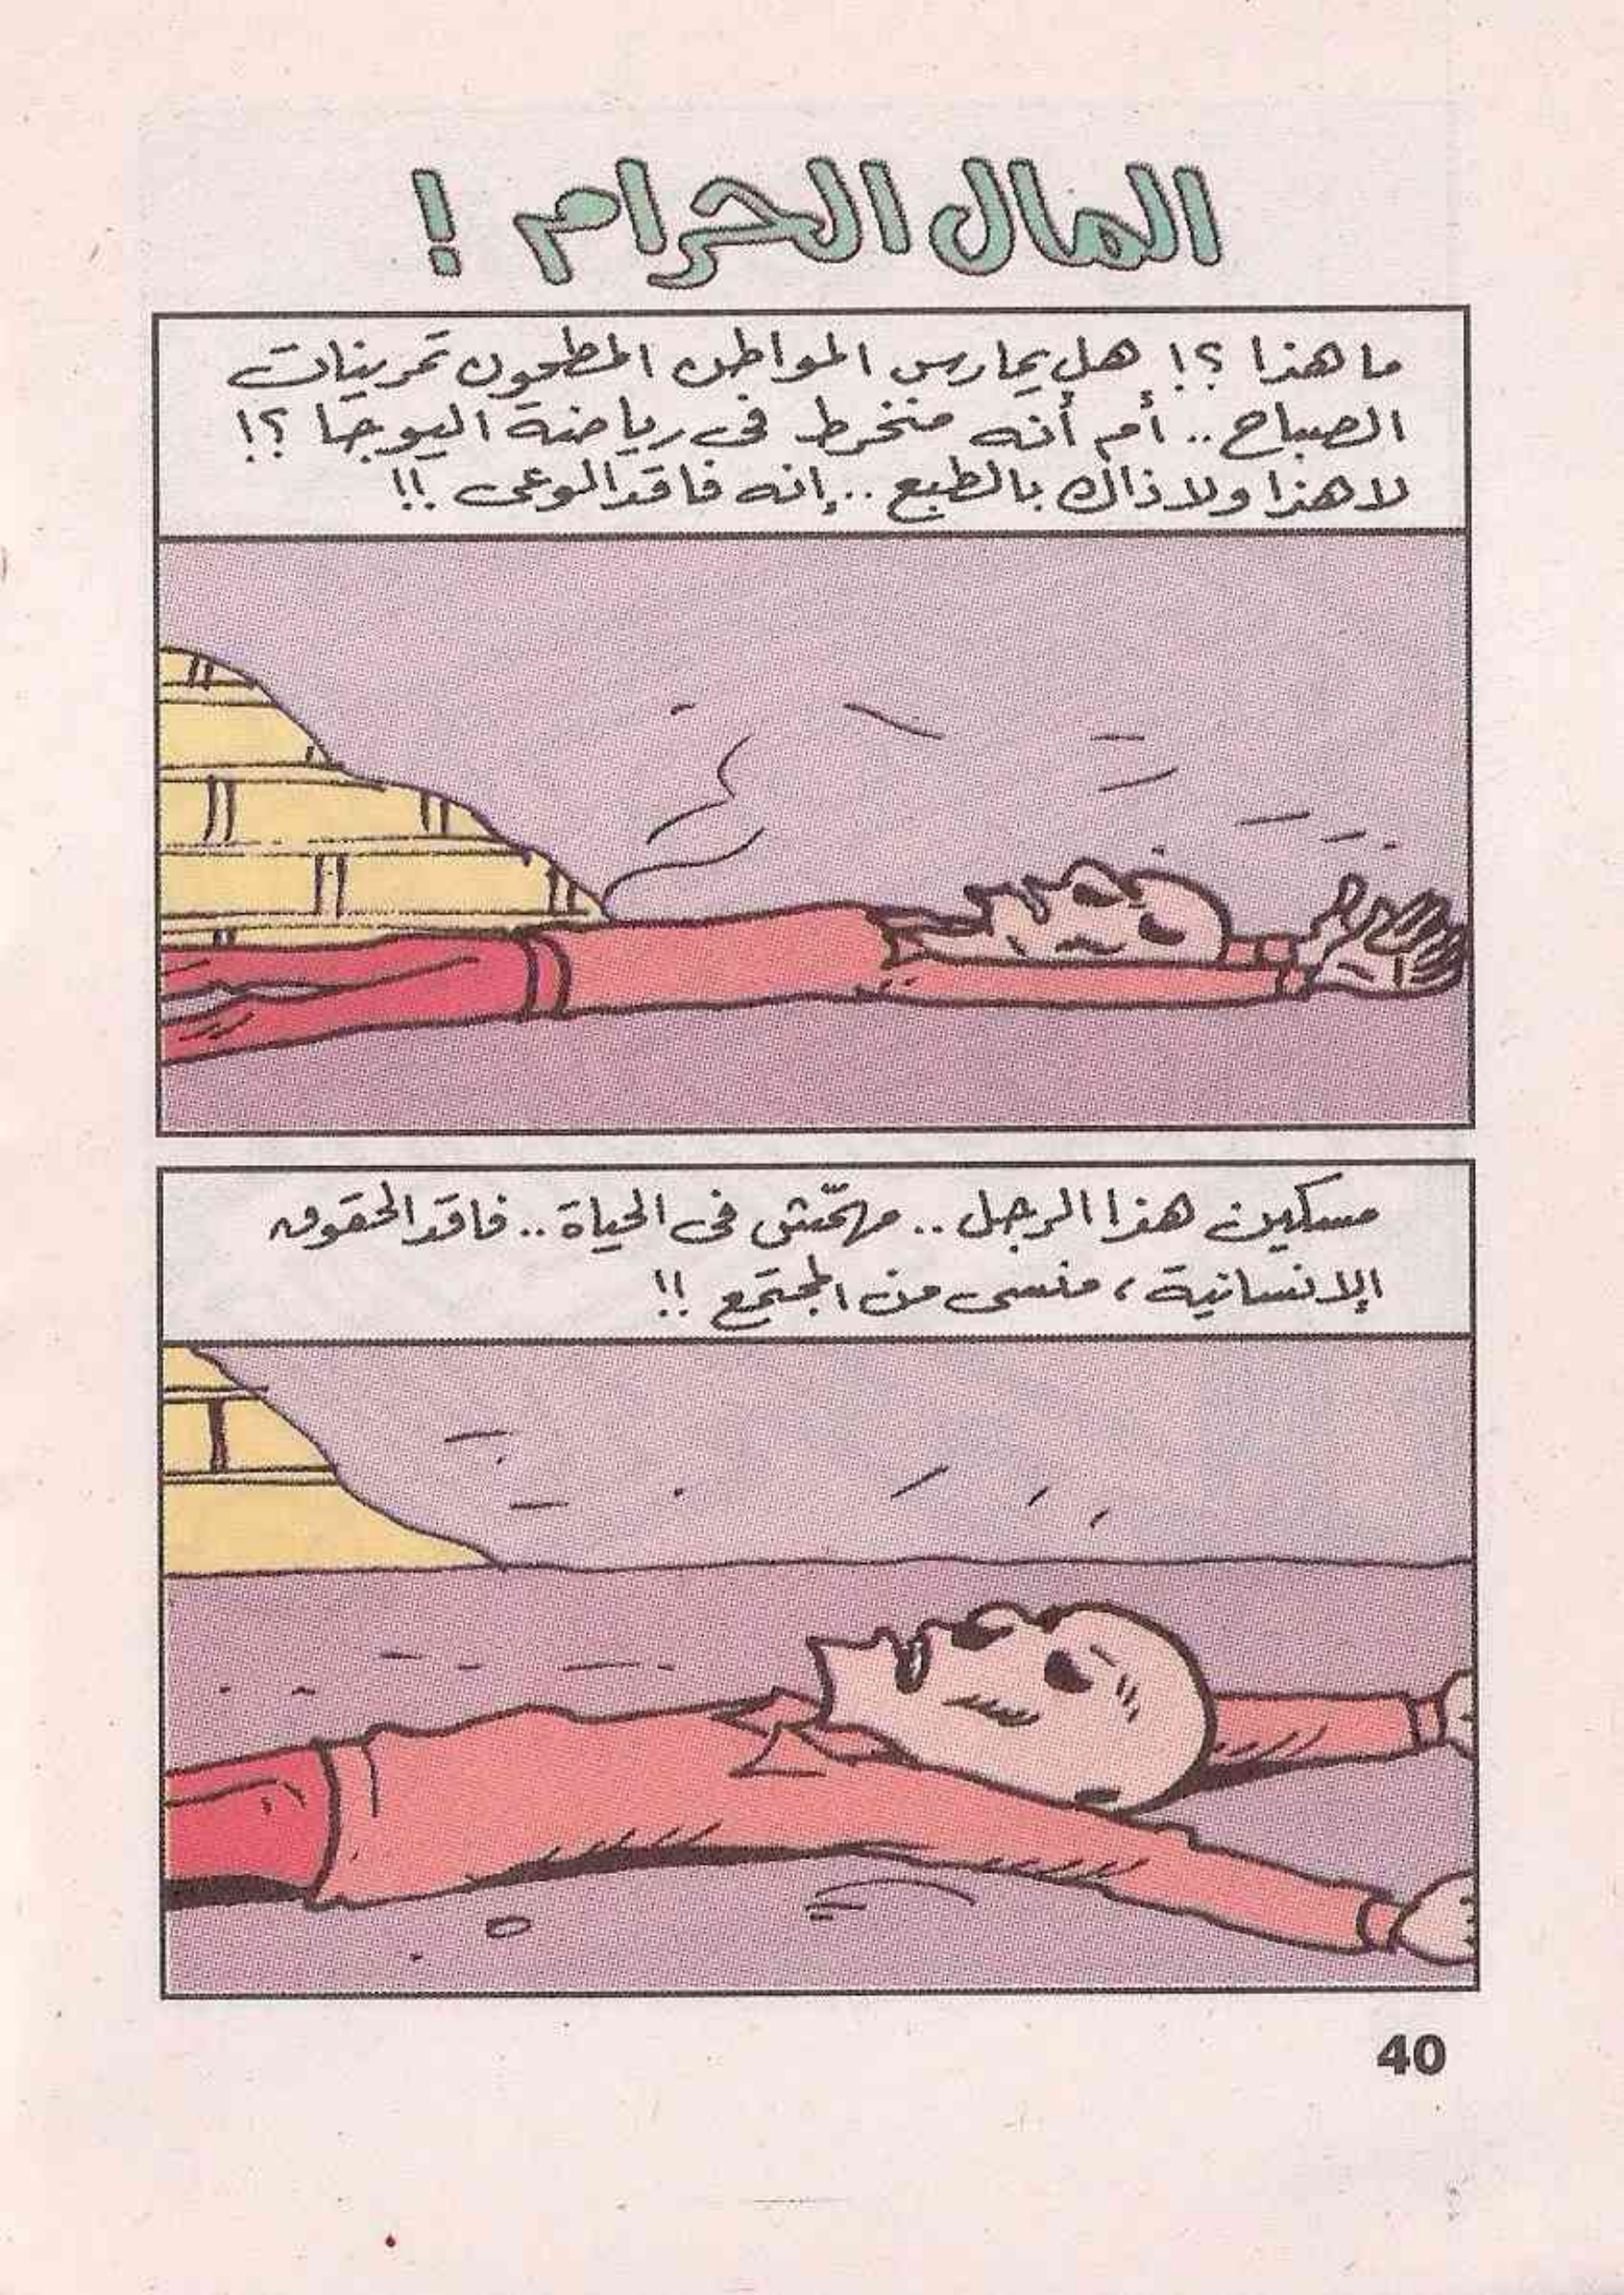 المال الحرام !
ما هذا ؟! هل يمارس المواطن المطحون تمرينات
الصباح .. أم أنه منخرط فى رياضة اليوجا ؟!
لا هذا ولا ذاك بالطبع .. إنه فاقد الوعى !!
مسكين هذا الرجل .. مهمّش فى الحياة .. فاقد الحقوق
الإنسانية ، منسى من المجتمع !!
40